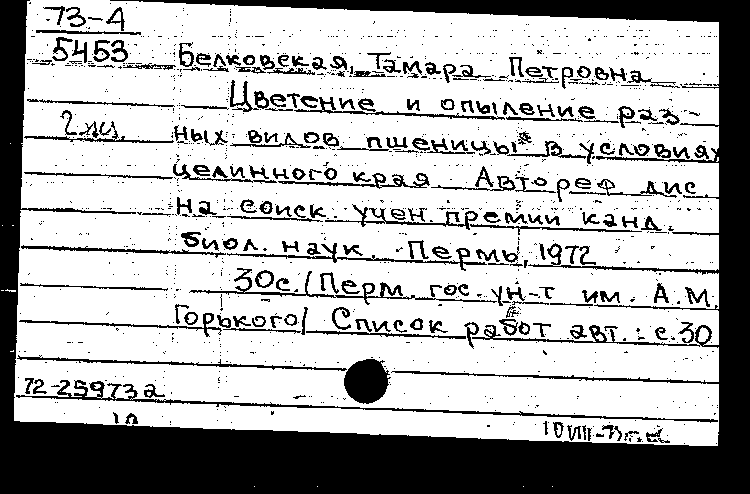 73-4
5453
Белковская, Тамара Петровна
Цветение и опыление раз-
2 экз.
ных видов пшеницы в условиях
целинного края. Автореф дис.
на соиск. учен. премии канд.
биол. наук. Пермь, 1972
30с. (Перм. гос. ун-т им. А.М.
Горького) Список работ авт.: с.30
72-25973а
10